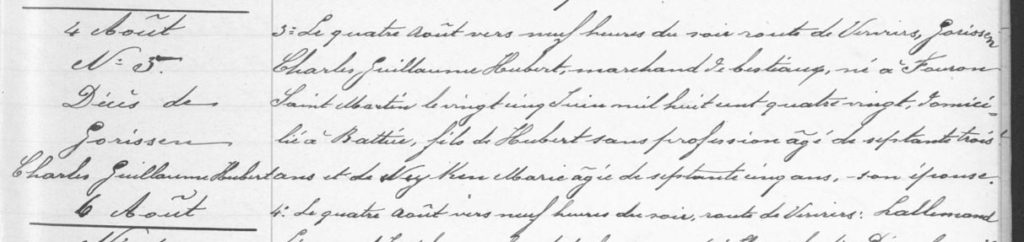 4 Août
N° 5.
Décès de
Gorissen
Charles Guillaume Hubert
6 Août
3° Le quatre Août vers neuf heures du soir route de Verviers, Gorissen
Charles Guillaume Hubert, marchand de bestiaux, né à Fouron
Saint Martin le vingt cinq Juin mil huit cent quatre vingt, domici-
lié à Battice, fils de Hubert sans profession âgé de septante trois
ans et de Neyken Marie âgée de septante cinq ans, son épouse.
4° Le quatre Août vers neuf heures du soir, route de Verviers: Lallemand